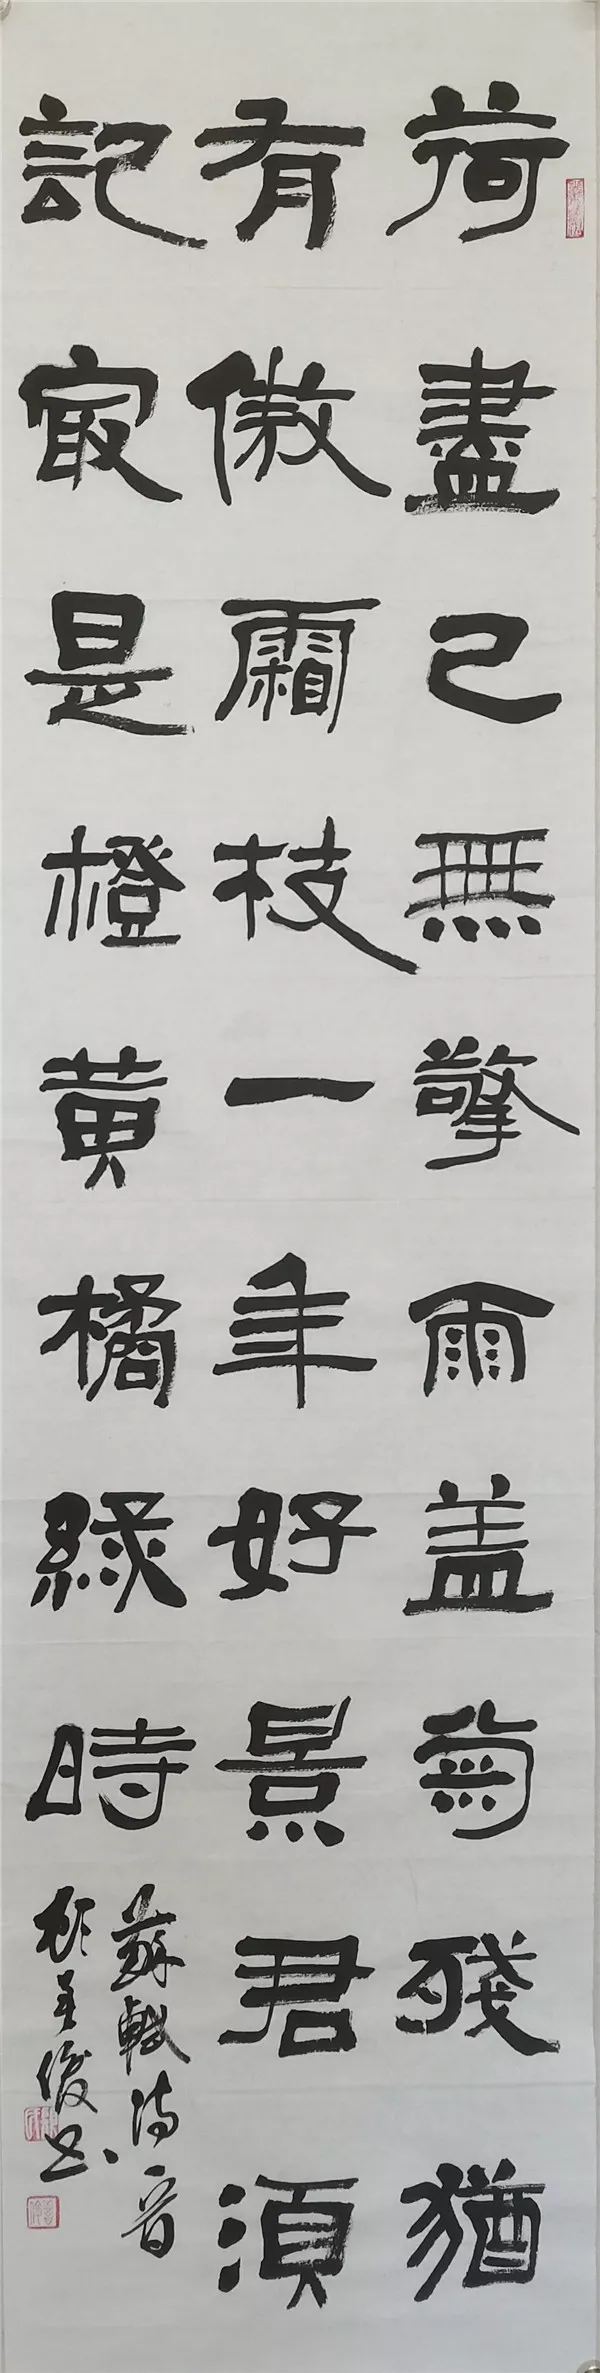 荷盡已無擎雨盖菊殘猶
有傲霜枝一年好景君須
記最是橙黄橘緑時
蘇軾詩一首
俊书